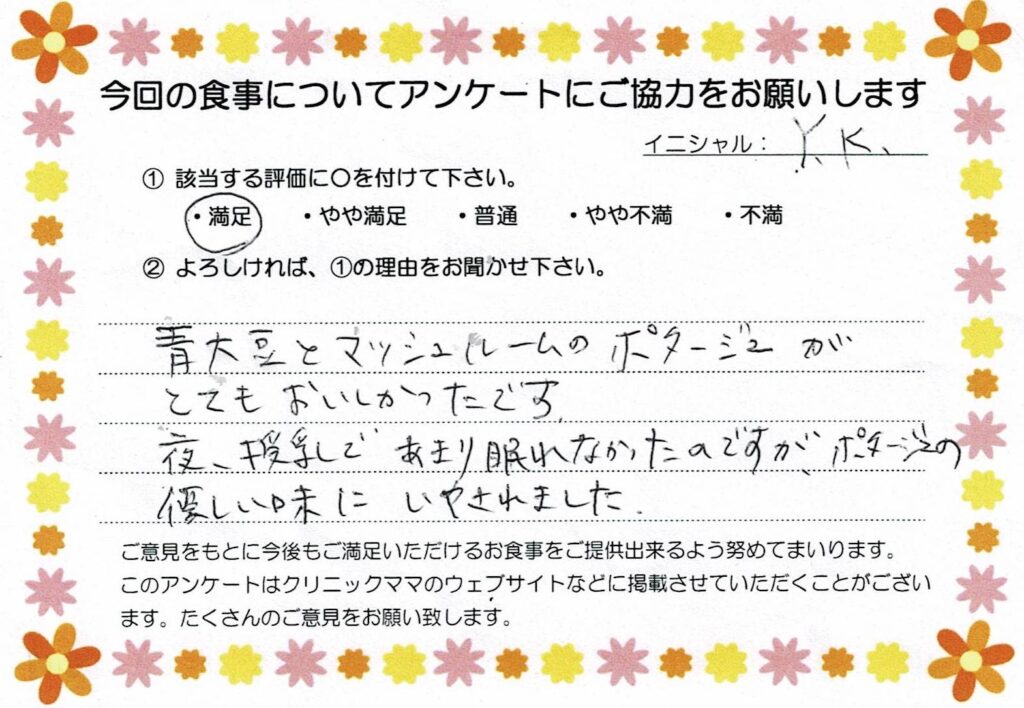 今回の食事についてアンケートにご協力をお願いします
イニシャル： Y.K.
① 該当する評価に○を付けて下さい。
・満足 ・やや満足 ・普通 ・やや不満 ・不満
② よろしければ、①の理由をお聞かせ下さい。
青大豆とマッシュルームのポタージュが
とてもおいしかったです。
夜、授乳であまり眠れなかったのですが、ポタージュの
優しい味に いやされました.
ご意見をもとに今後もご満足いただけるお食事をご提供出来るよう努めてまいります。
このアンケートはクリニックママのウェブサイトなどに掲載させていただくことがござい
ます。たくさんのご意見をお願い致します。